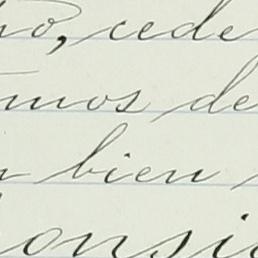 ho, cede
mos de
bien
onsi